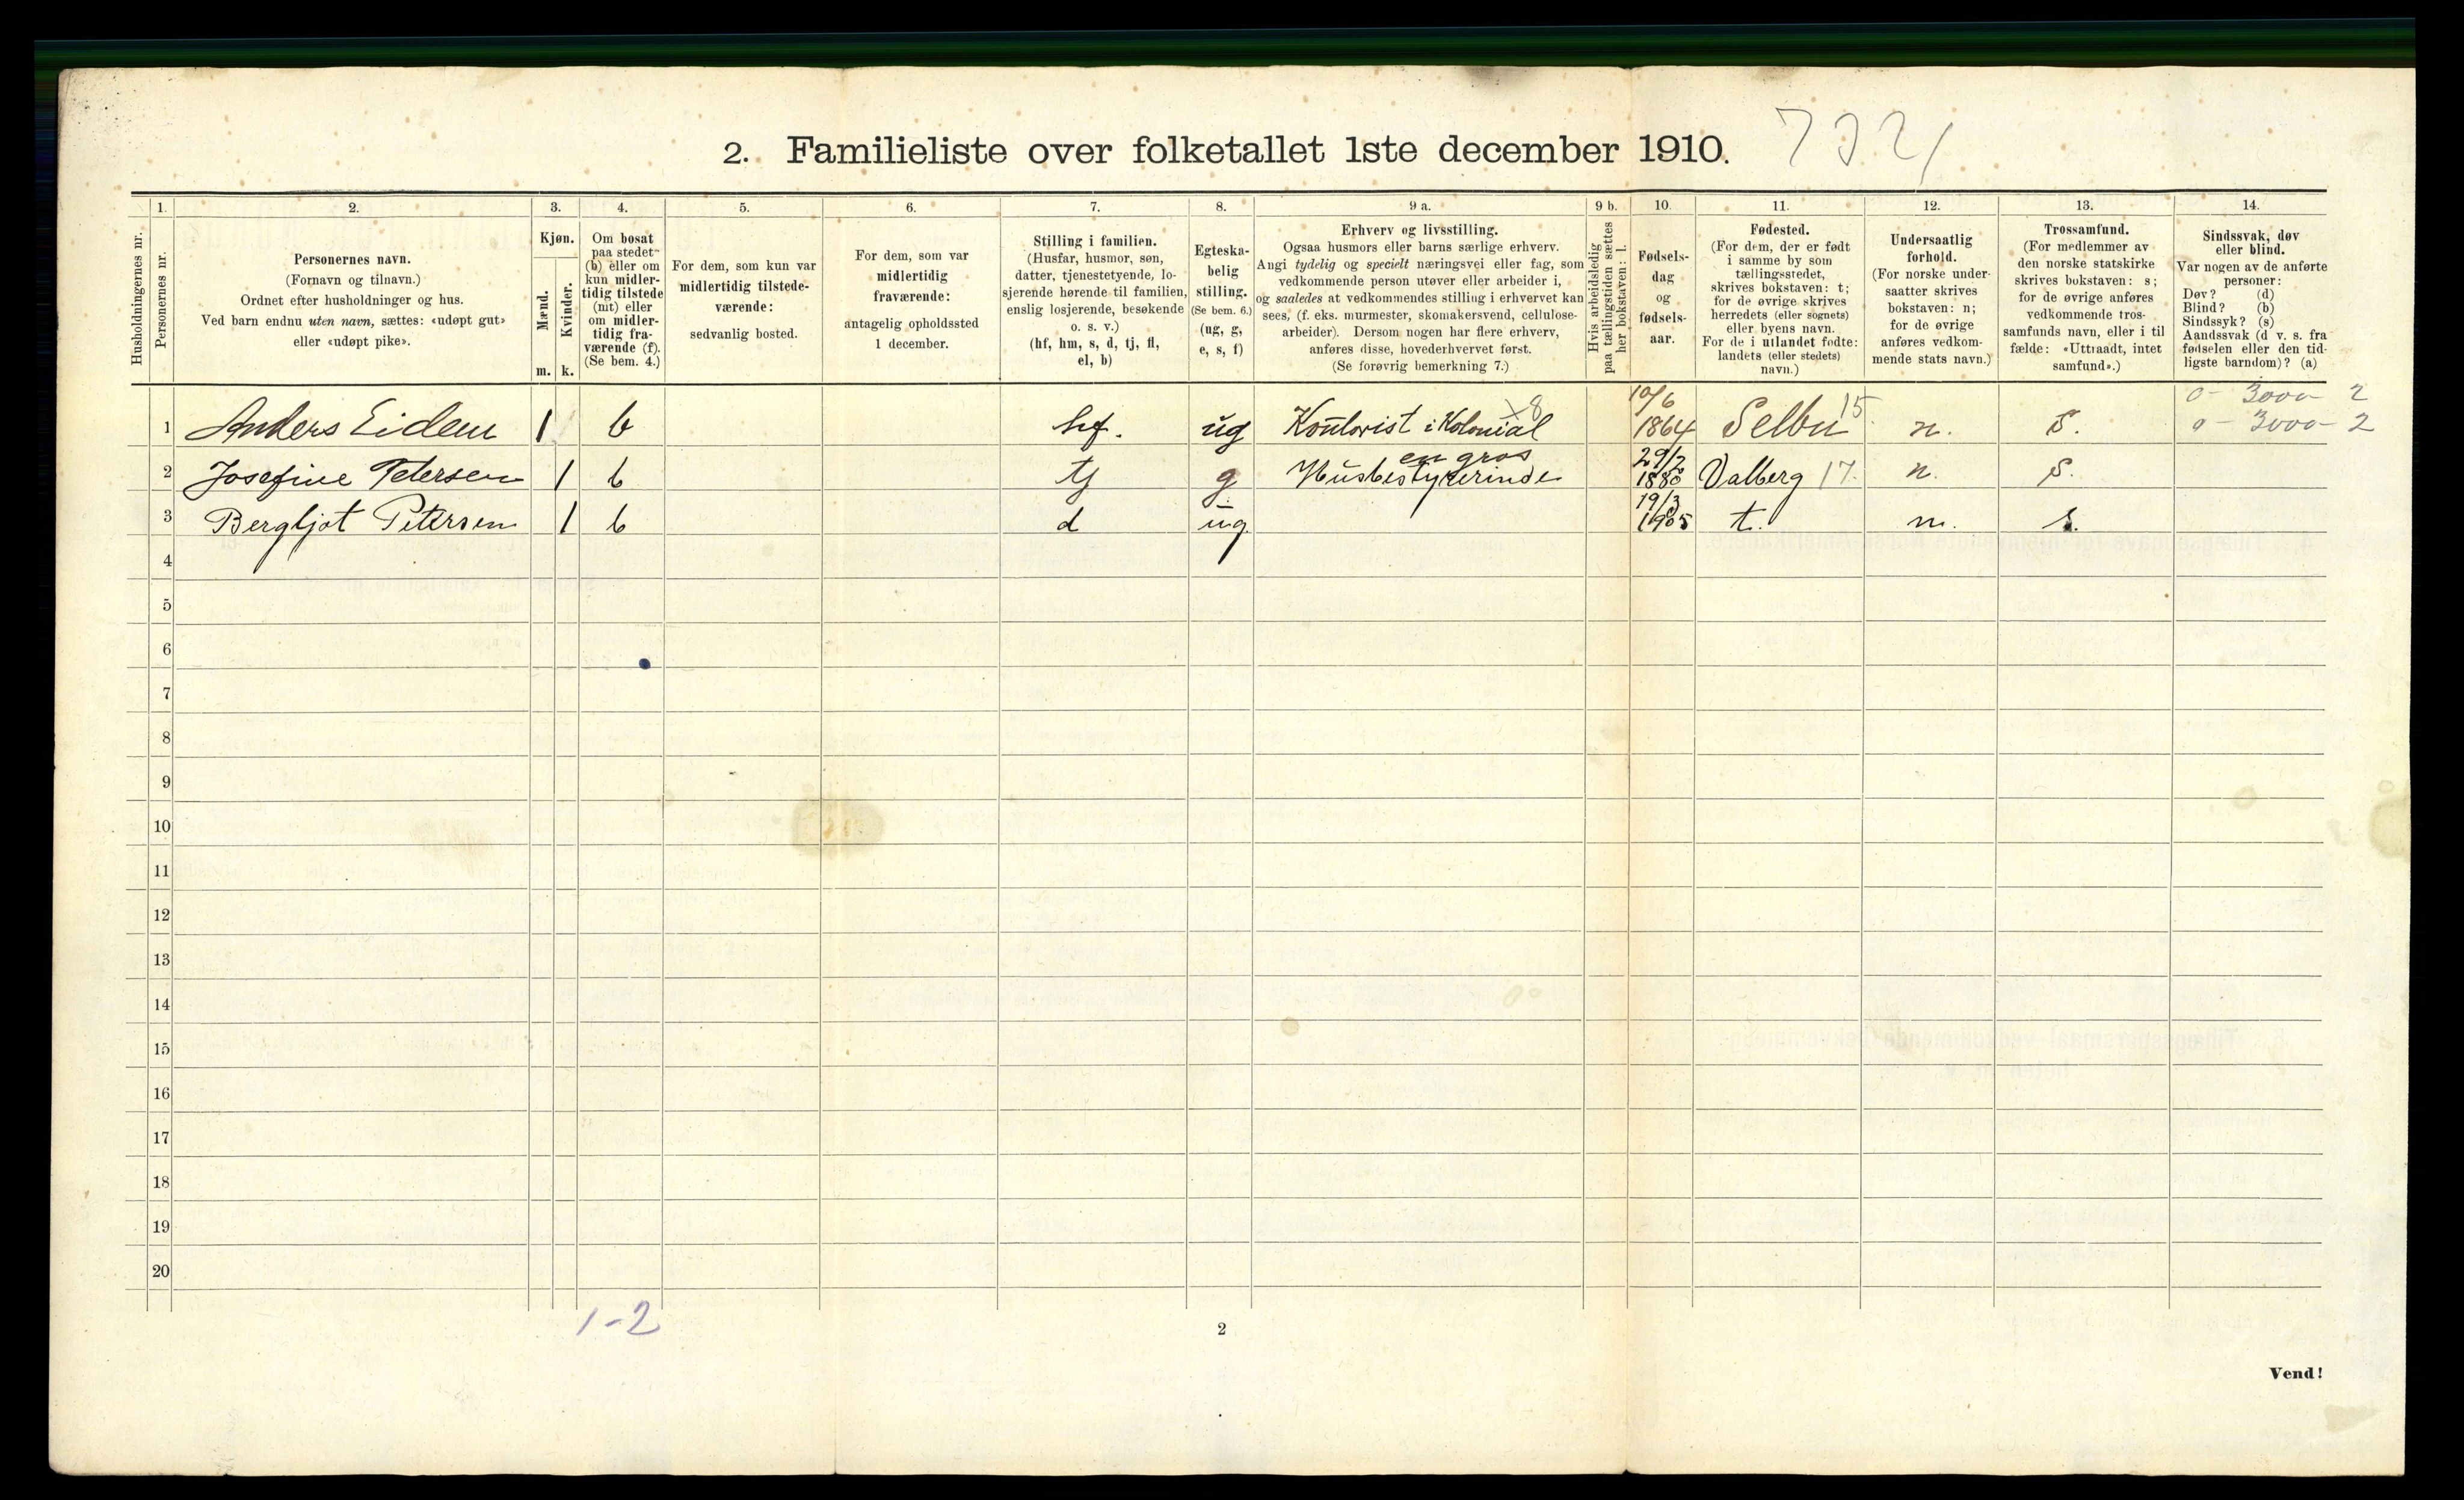 2. Familieliste over folketallet 1ste december 1910. 7321
1. 2. 3. 4. 5. 6. 7. 8. 9 a. 9 b. 10. 11. 12. 13. 14.
Husholdningernes nr.
Personernes nr.
Personernes navn.
(Fornavn og tilnavn.)
Ordnet efter husholdninger og hus.
Ved barn endnu uten navn, sættes: «udøpt gut»
eller «udøpt pike».
Kjøn.
Mænd.
Kvinder.
m. k.
Om bosat
paa stedet
(b) eller om
kun midler-
tidig tilstede
(mt) eller
om midler-
tidig fra-
værende (f).
(Se bem. 4.)
For dem, som kun var
midlertidig tilstede-
værende:
sedvanlig bosted.
For dem, som var
midlertidig
fraværende:
antagelig opholdssted
1 december.
Stilling i familien.
(Husfar, husmor, søn,
datter, tjenestetyende, lo-
sjerende hørende til familien,
enslig losjerende, besøkende
o. s. v.)
(hf, hm, s, d, tj, fl,
el, b)
Egteska-
belig
stilling.
(Se bem. 6.)
(ug, g,
e, s, f)
Erhverv og livsstilling.
Ogsaa husmors eller barns særlige erhverv.
Angi tydelig og specielt næringsvei eller fag, som
vedkommende person utøver eller arbeider i,
og saaledes at vedkommendes stilling i erhvervet kan
sees, (f. eks. murmester, skomakersvend, cellulose-
arbeider). Dersom nogen har flere erhverv,
anføres disse, hovederhvervet først.
(Se forøvrig bemerkning 7.)
Hvis arbeidsledig
paa tællingstiden sættes
her bokstaven: l.
Fødsels-
dag
og
fødsels-
aar.
Fødested.
(For dem, der er født
i samme by som
tællingsstedet,
skrives bokstaven: t;
for de øvrige skrives
herredets (eller sognets)
eller byens navn.
For de i utlandet fødte:
landets (eller stedets)
navn.)
Undersaatlig
forhold.
(For norske under-
saatter skrives
bokstaven: n;
for de øvrige
anføres vedkom-
mende stats navn.)
Trossamfund.
(For medlemmer av
den norske statskirke
skrives bokstaven: s;
for de øvrige anføres
vedkommende tros-
samfunds navn, eller i til
fælde: «Uttraadt, intet
samfund».)
Sindssvak, døv
eller blind.
Var nogen av de anførte
personer:
Døv? (d)
Blind? (b)
Sindssyk? (s)
Aandssvak (d v. s. fra
fødselen eller den tid-
ligste barndom)? (a)
0 - 3000 - 2
1 Anders Eidem 1 b hf. ug Kontorist i Kolonial x8 10/6 1864 Selbu 15 n. S. 0 - 3000 - 2
en gros
2 Josefine Petersen 1 b tj g Husbestyrerinde 29/2 1880 Valberg 17. n. S.
3 Bergljot Petersen 1 b d ug 19/3 1905 t. n. s.
4
5
6
7
8
9
10
11
12
13
14
15
16
17
18
19
20
1-2
2
Vend!